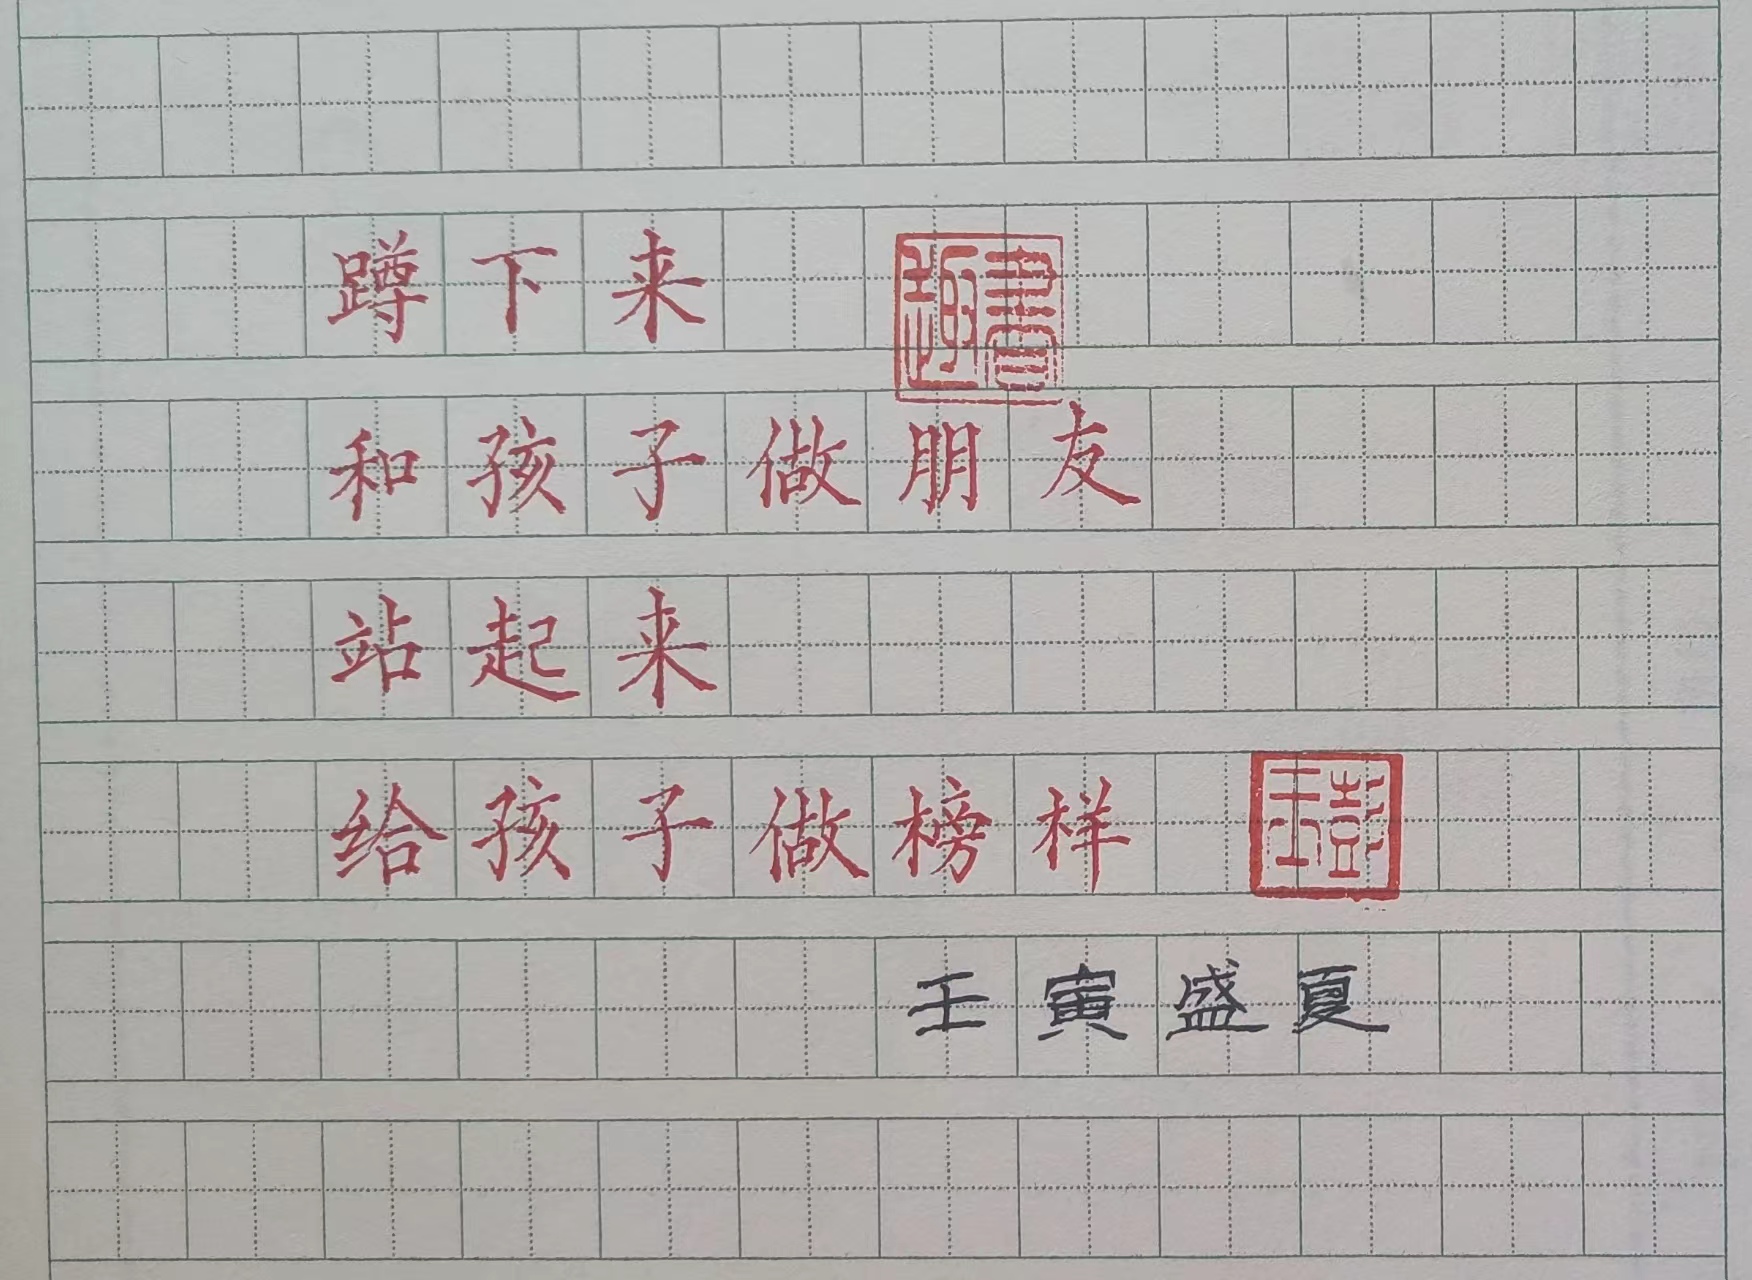 蹲下来
和孩子做朋友
站起来
给孩子做榜样
壬寅盛夏